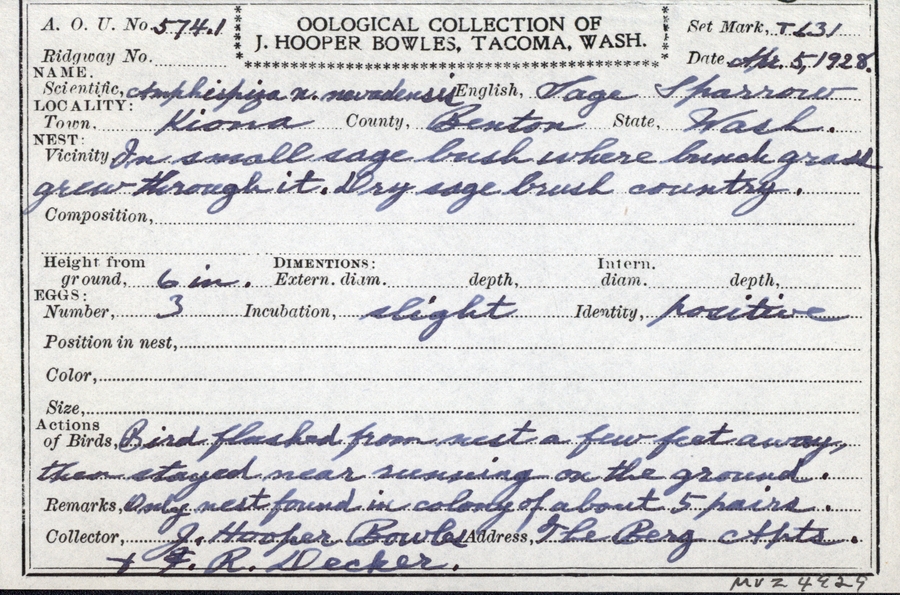 A. O. U. No. 574.1 OOLOGICAL COLLECTION OF Set Mark, TL31
J. HOOPER BOWLES, TACOMA, WASH.
Ridgway No. Date Apr. 5, 1928.
NAME.
Scientific, Amphispiza n. nevadensis English, Sage Sparrow
LOCALITY:
Town. Kiona County, Benton State, Wash.
NEST:
Vicinity, In small sage bush where bunch grass
grew through it. Dry sage brush country.
Composition,
Height from DIMENTIONS: Intern.
ground, 6 in. Extern. diam. depth, diam. depth,
EGGS:
Number, 3 Incubation, slight Identity, positive
Position in nest,
Color,
Size,
Actions
of Birds, Bird flushed from nest a few feet away,
then stayed near running on the ground.
Remarks, Only nest found in colony of about 5 pairs.
Collector, J. Hooper Bowles Address, The Berg Apts.
+ F. R. Decker.
MVZ 4929